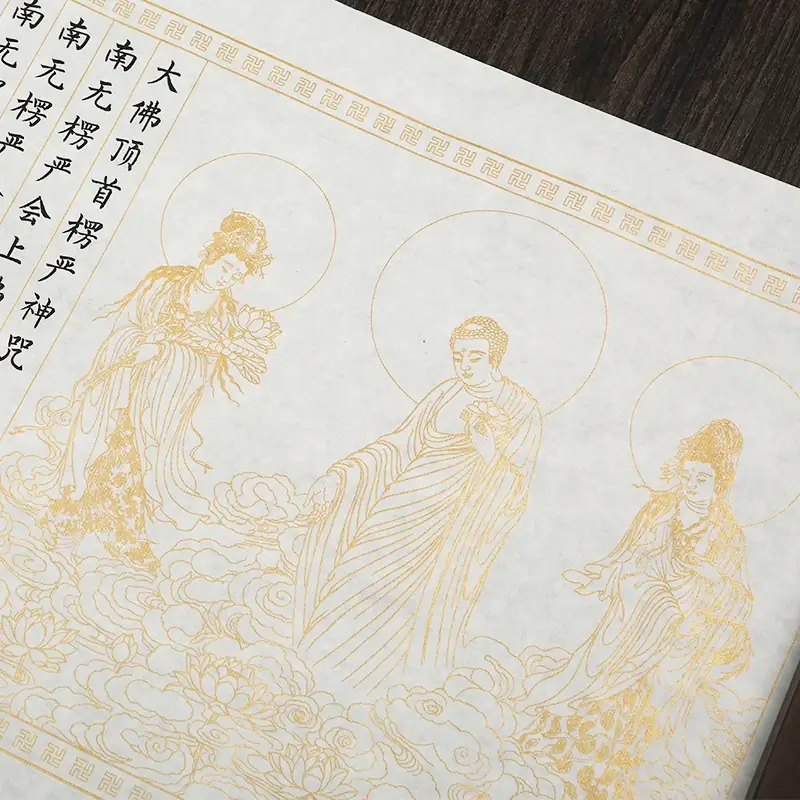 大佛顶首楞严神咒
南无楞严会上
南无楞严
南无